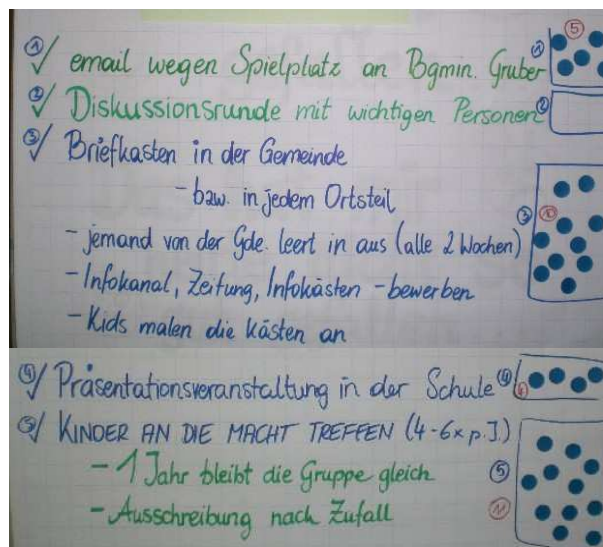 ① ✓ email wegen Spielplatz an Bgmin. Gruber ① ⑤
② ✓ Diskussionsrunde mit wichtigen Personen ②
③ ✓ Briefkasten in der Gemeinde
- bzw. in jedem Ortsteil
- jemand von der Gde. leert in aus (alle 2 Wochen) ③ ⑩
- Infokanal, Zeitung, Infokästen - bewerben
- Kids malen die Kästen an
④ ✓ Präsentationsveranstaltung in der Schule ④
⑤ ✓ KINDER AN DIE MACHT TREFFEN (4-6x p. J.)
- 1 Jahr bleibt die Gruppe gleich ⑤
- Ausschreibung nach Zufall ⑪